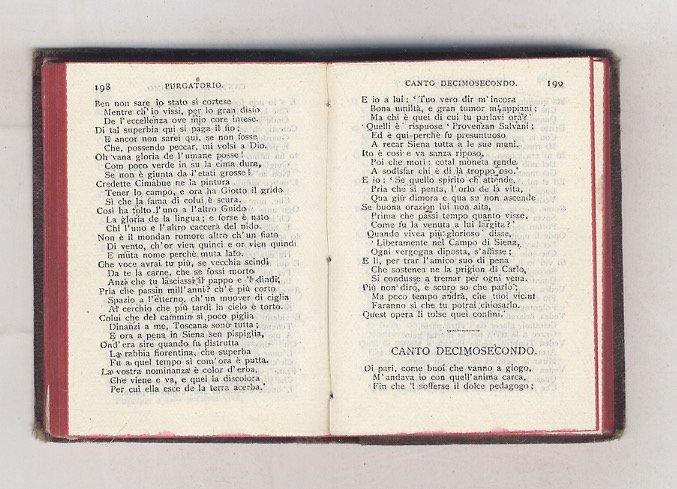 198 PURGATORIO.
Ben non sare io stato sì cortese
Mentre ch'io vissi, per lo gran disio
De l'eccellenza ove mio core intese.
Di tal superbia qui si paga il fio;
E ancor non sarei qui, se non fosse
Che, possendo peccar, mi volsi a Dio.
Oh vana gloria de l'umane posse!
Com poco verde in su la cima dura,
Se non è giunta da l'etati grosse!
Credette Cimabue ne la pintura
Tener lo campo, e ora ha Giotto il grido
Sì che la fama di colui è scura.
Così ha tolto l'uno a l'altro Guido
La gloria de la lingua; e forse è nato
Chi l'uno e l'altro caccerà del nido.
Non è il mondan romore altro ch'un fiato
Di vento, ch'or vien quinci e or vien quindi
E muta nome perchè muta lato.
Che voce avrai tu più, se vecchia scindi
Da te la carne, che se fossi morto
Anzi che tu lasciassi il pappo e 'l dindi,
Pria che passin mill'anni? ch'è più corto
Spazio a l'etterno, ch'un muover di ciglia
Al cerchio che più tardi in cielo è torto.
Colui che del cammin sì poco piglia
Dinanzi a me, Toscana sonò tutta;
E ora a pena in Siena sen pispiglia,
Ond'era sire quando fu distrutta
La rabbia fiorentina, che superba
Fu a quel tempo sì com'ora è putta.
La vostra nominanza è color d'erba,
Che viene e va, e quei la discolora
Per cui ella esce de la terra acerba.'
CANTO DECIMOSECONDO. 199
E io a lui: 'Tuo vero dir m'incora
Bona umiltà, e gran tumor m'appiani;
Ma chi è quei di cui tu parlavi ora?'
'Quelli è' rispuose 'Provenzan Salvani;
Ed è qui perchè fu presuntuoso
A recar Siena tutta a le sue mani.
Ito è così e va sanza riposo,
Poi che morì: cotal moneta rende
A sodisfar chi è di là troppo oso.'
E io: 'Se quello spirito ch'attende,
Pria che si penta, l'orlo de la vita,
Qua giù dimora e qua su non ascende
Se buona orazion lui non aita,
Prima che passi tempo quanto visse,
Come fu la venuta a lui largita?'
'Quando vivea più glorioso' disse,
'Liberamente nel Campo di Siena,
Ogni vergogna diposta, s'affisse;
E lì, per trar l'amico suo di pena
Che sostenea ne la prigion di Carlo,
Si condusse a tremar per ogni vena.
Più non dirò, e scuro so che parlo;
Ma poco tempo andrà, che tuoi vicini
Faranno sì che tu potrai chiosarlo.
Quest opera li tolse quei confini.'
CANTO DECIMOSECONDO.
Di pari, come buoi che vanno a giogo,
M'andava io con quell'anima carca,
Fin che 'l sofferse il dolce pedagogo;